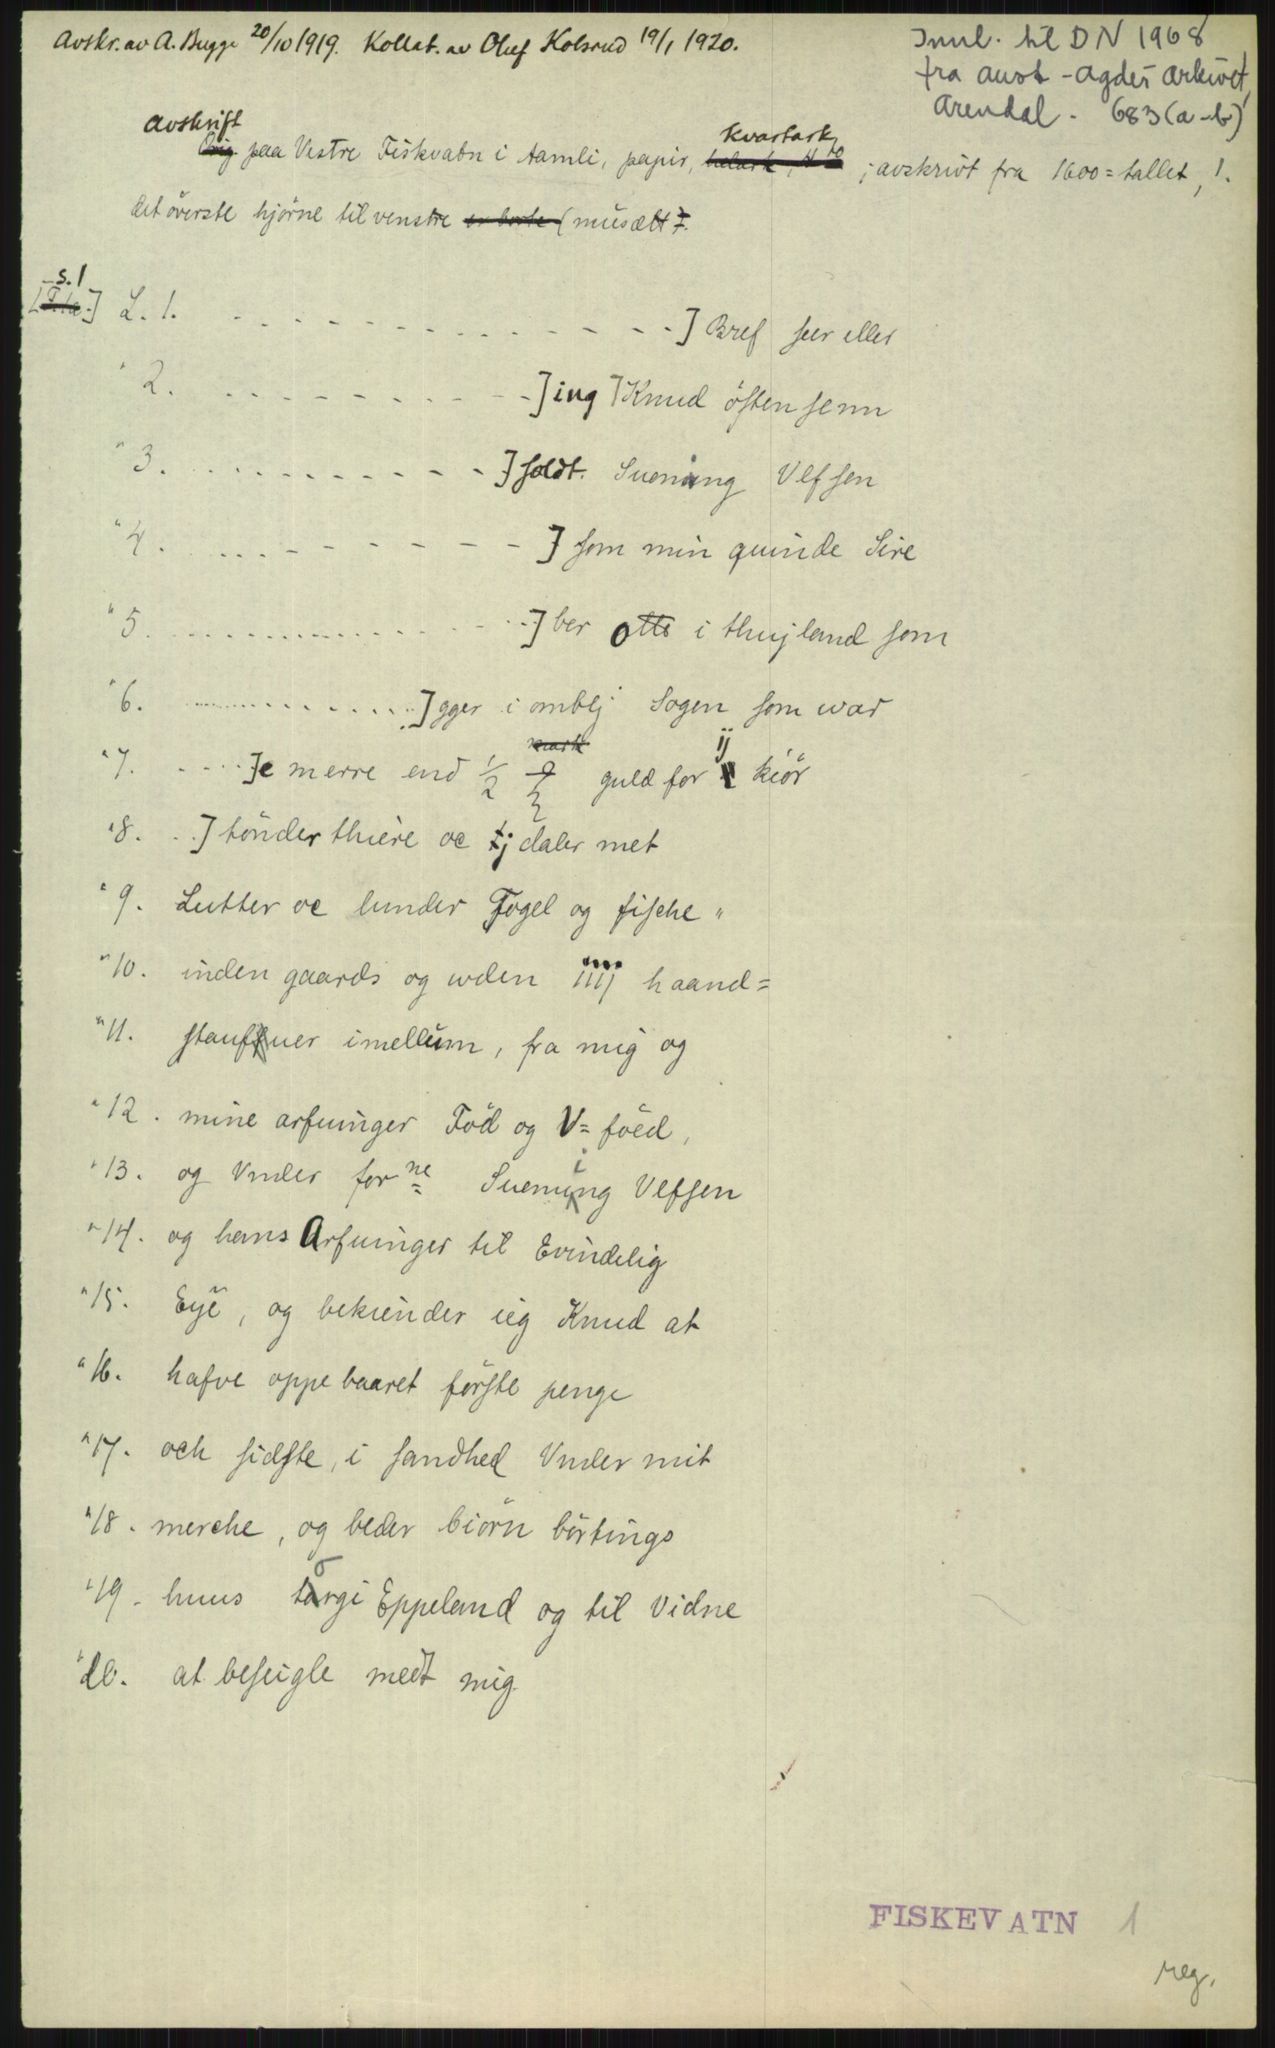 Avskr. av A. Bugge 20/10 1919. Kollat. av Oluf Kolsrud 19/1 1920.
Innl. til DN 1968
fra aust-agder arkivet,
Arendal. 683 (a-b)
avskrift kvartark
Orig. paa Vestre Fiskvatn i Aamli, papir, ; avskrivt fra 1600=tallet, !.
det överste hjörne til venstre er borte (musætt).
s. 1
L. 1. - - - - - - - ] Bref seer eller
" 2. - - - - - - - ] ing Knud östensenn
" 3. - - - - - - - ] soldt. Suening Ulfsen
" 4. - - - - - - - ] som min quinde Sire
" 5. - - - - - - - ] ber otte i thujland som
" 6. - - - - - - - ] gger i omblj Sogen som war
mark ij
" 7. - - - ] e merre end 1/2 guld for kiör
" 8. - - ] tönder thiere oc tj daler met
" 9. Lutter oc lunder Fogel og fische "
" 10. inden gaards og uden iiij haand=
" 11. staufuer imellum, fra mig og
" 12. mine arfuinger Föd og V= föed,
" 13. og Vnder forne Suening Ulfsen
" 14. og hans Arfuinger til Evindelig
" 15. Eye, og bekiender ieg Knud at
" 16. hafve oppebaaret förste penge
" 17. och sidste, i sandhed Vnder mit
" 18. merche, og beder biörn börtings
" 19. huus torgi Eppeland og til Vidne
" 20. at beseigle medt mig
FISKEVATN 1
reg.